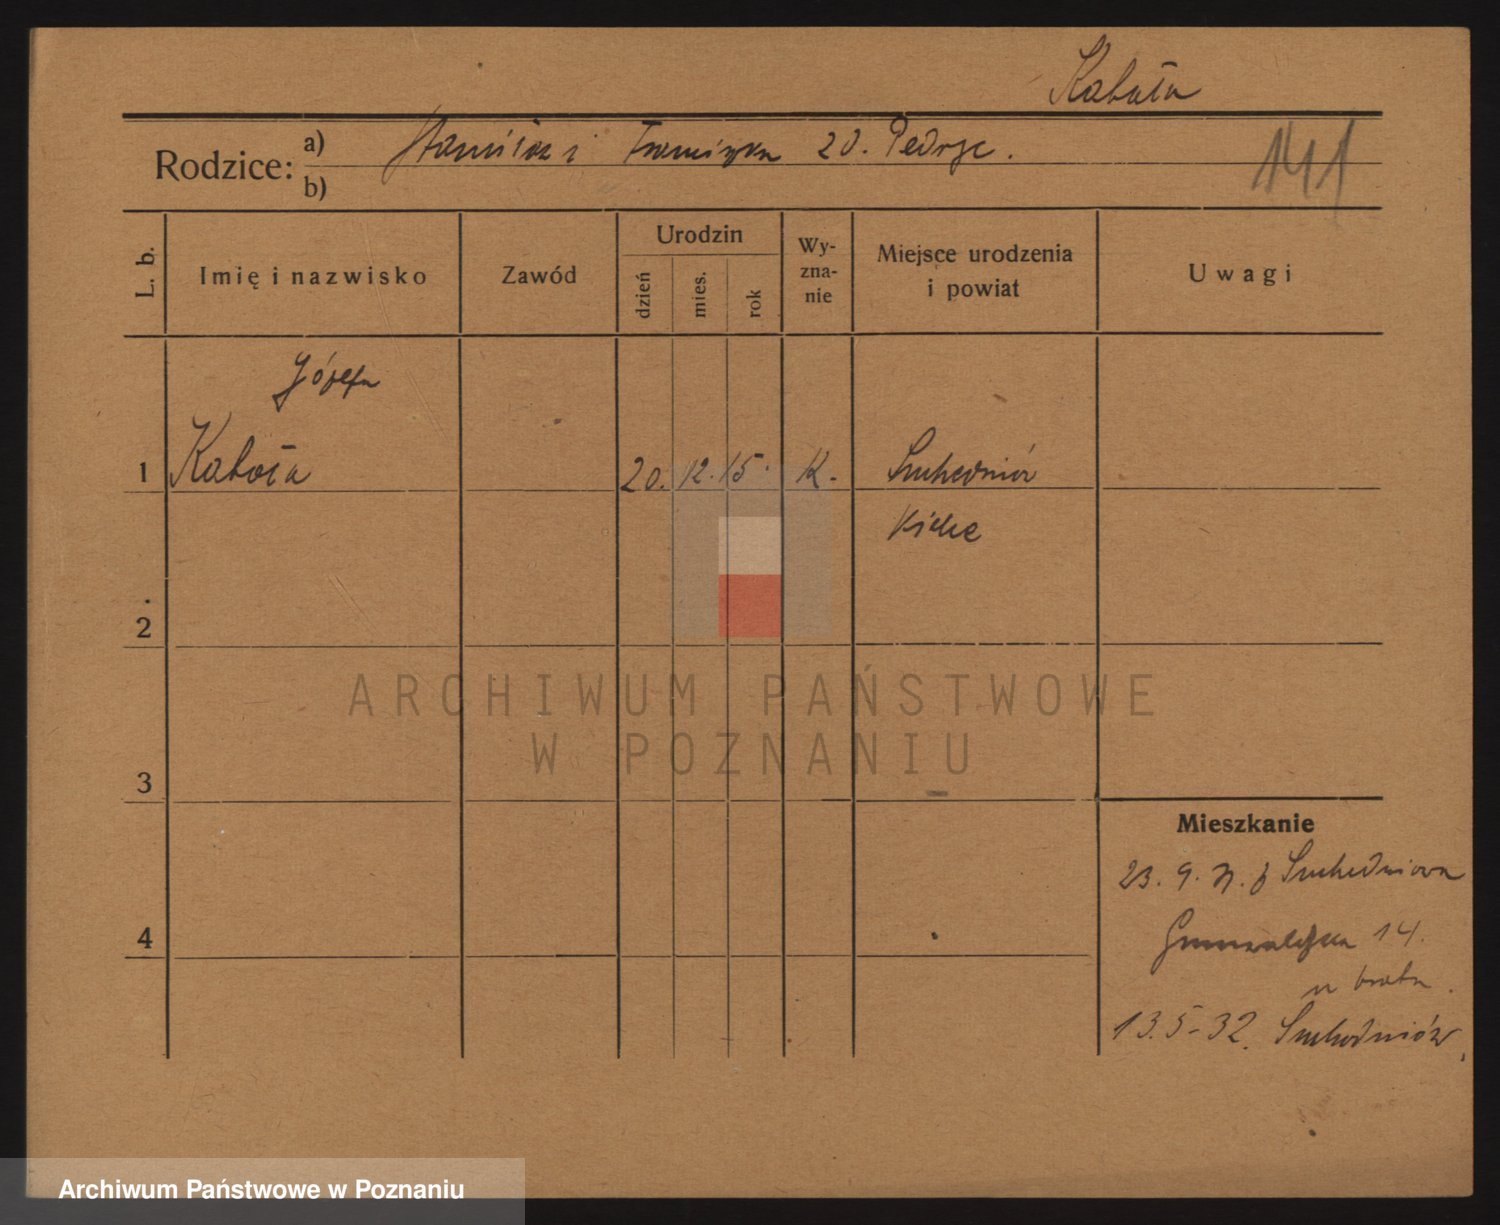 Kabała
Rodzice: a) Stanisław i Franciszka zd. Pedrys.
b)
141
L. b.
Imię i nazwisko
Zawód
Urodzin
dzień
mies.
rok
Wy-
zna-
nie
Miejsce urodzenia
i powiat
Uwagi
Józefa
1 Kabała 20. 12. 15. K. Suchedniów
Kielce
2
ARCHIWUM PAŃSTWOWE
W POZNANIU
3
Mieszkanie
23. 9. 31. z Suchedniowa
4
Grunwaldzka 14.
u brata.
13.5-32. Suchedniów.
Archiwum Państwowe w Poznaniu